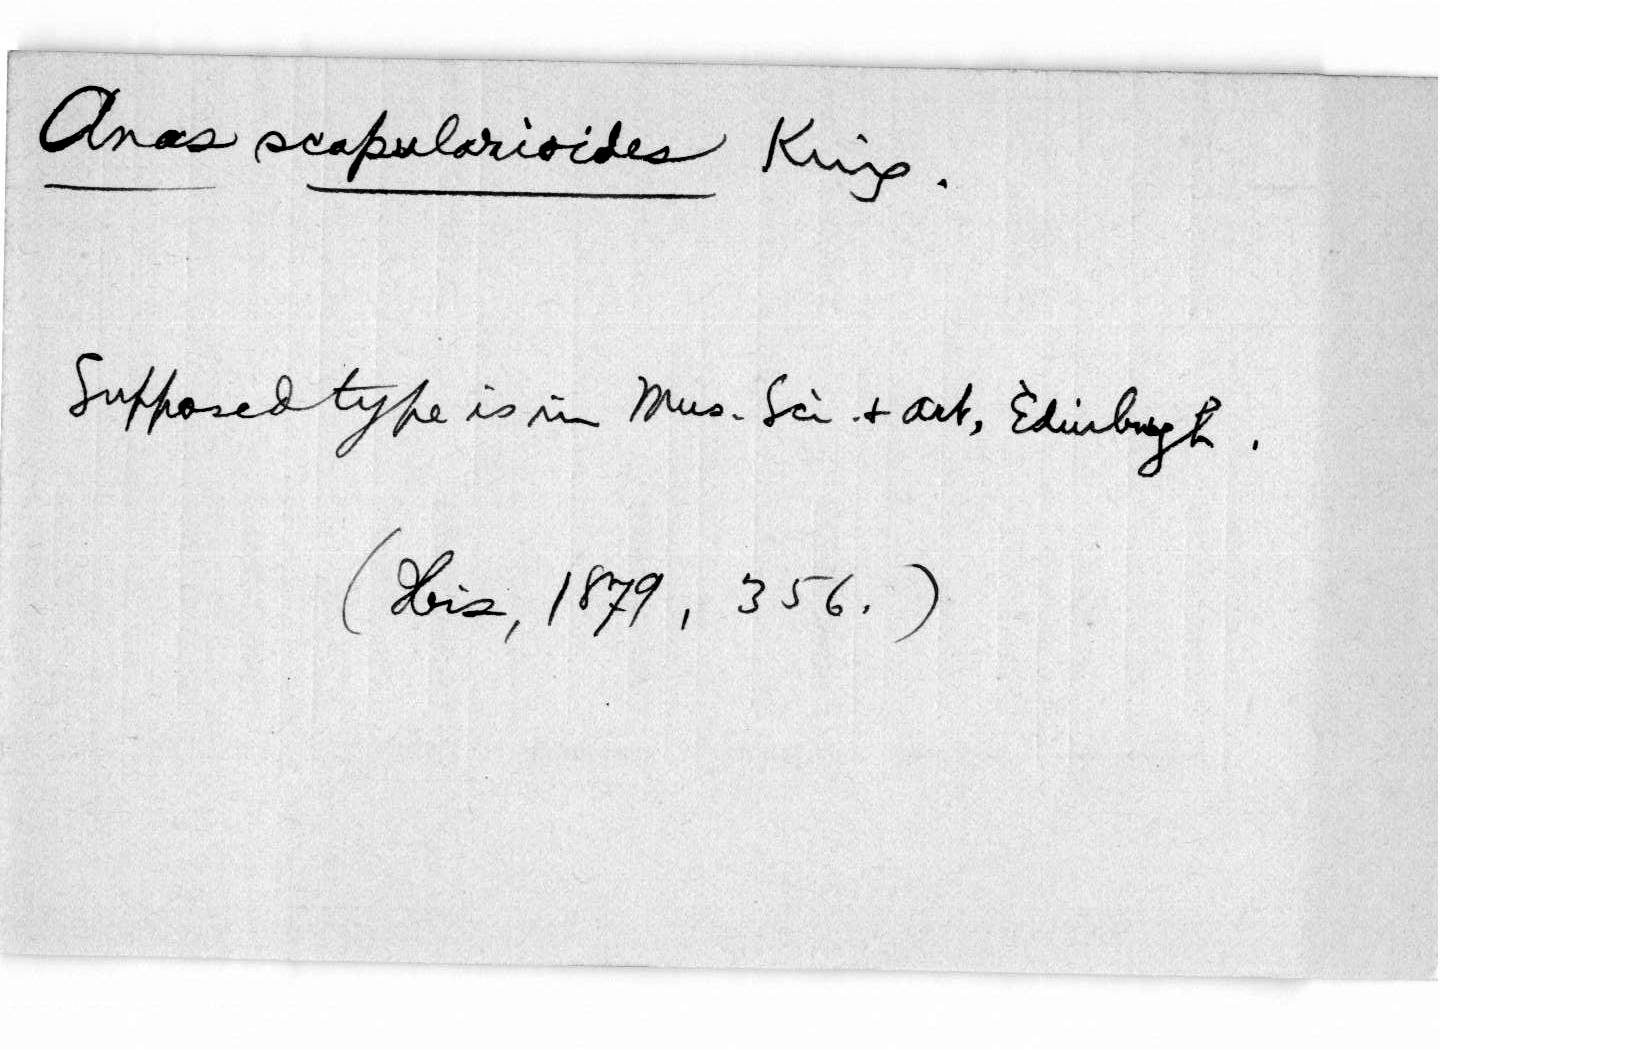 Anas scapularioides King.
Supposed type is in Mus. Sci. + Art, Edinburgh.
(Ibis, 1879, 356.)